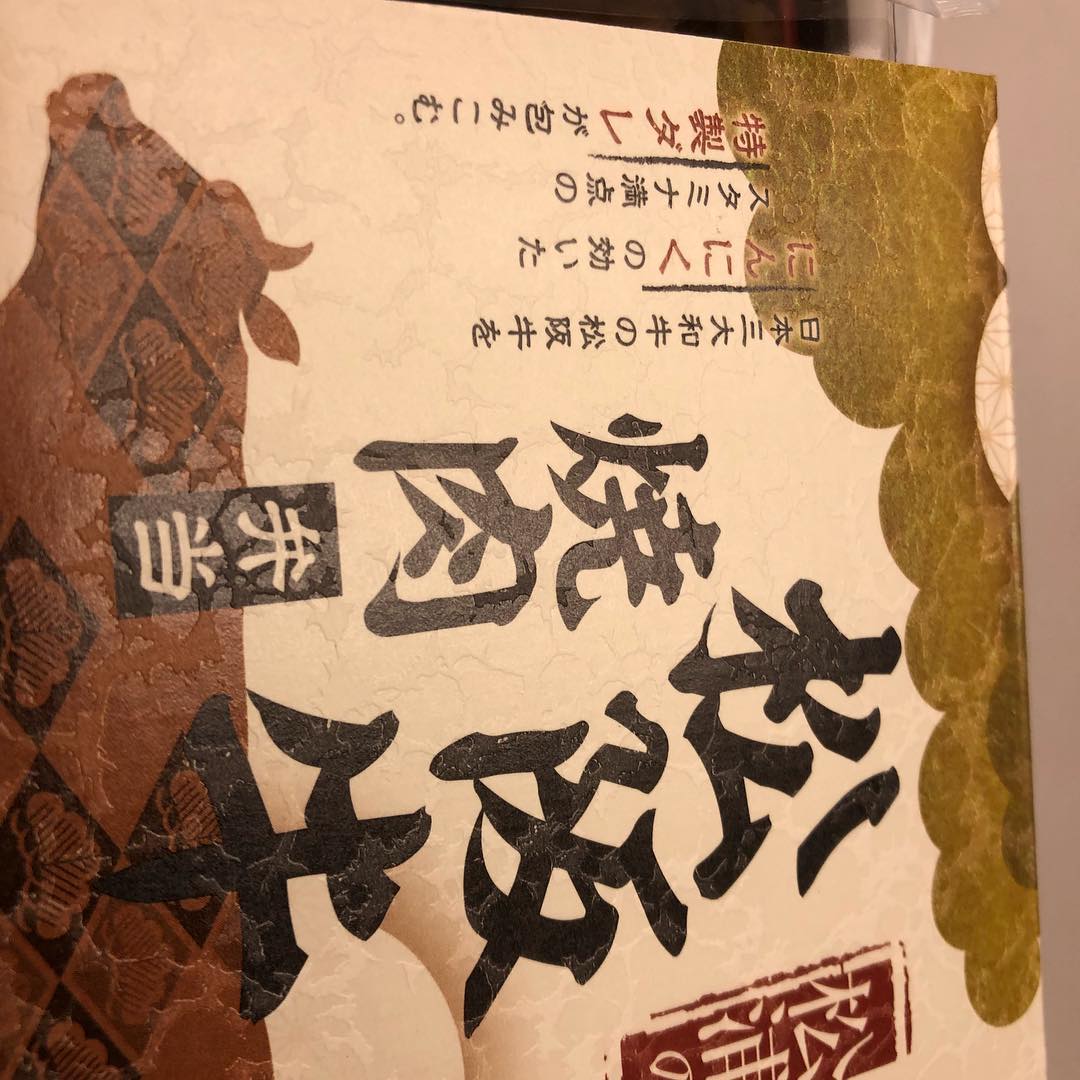 松浦の
松阪牛
焼肉
弁当
日本三大和牛の松阪牛を
にんにくの効いた
スタミナ満点の
特製ダレが包みこむ。